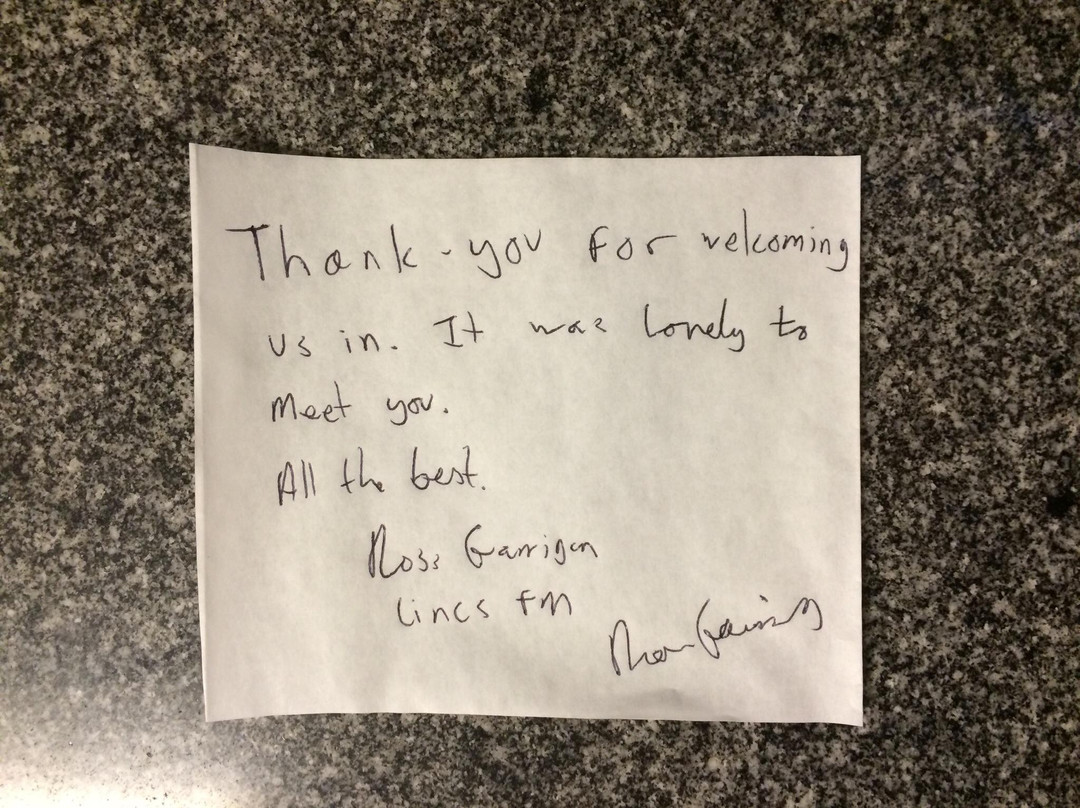 Thank-you for welcoming
us in. It was lovely to
meet you.
All the best.
Ross Garrigan
Lincs FM